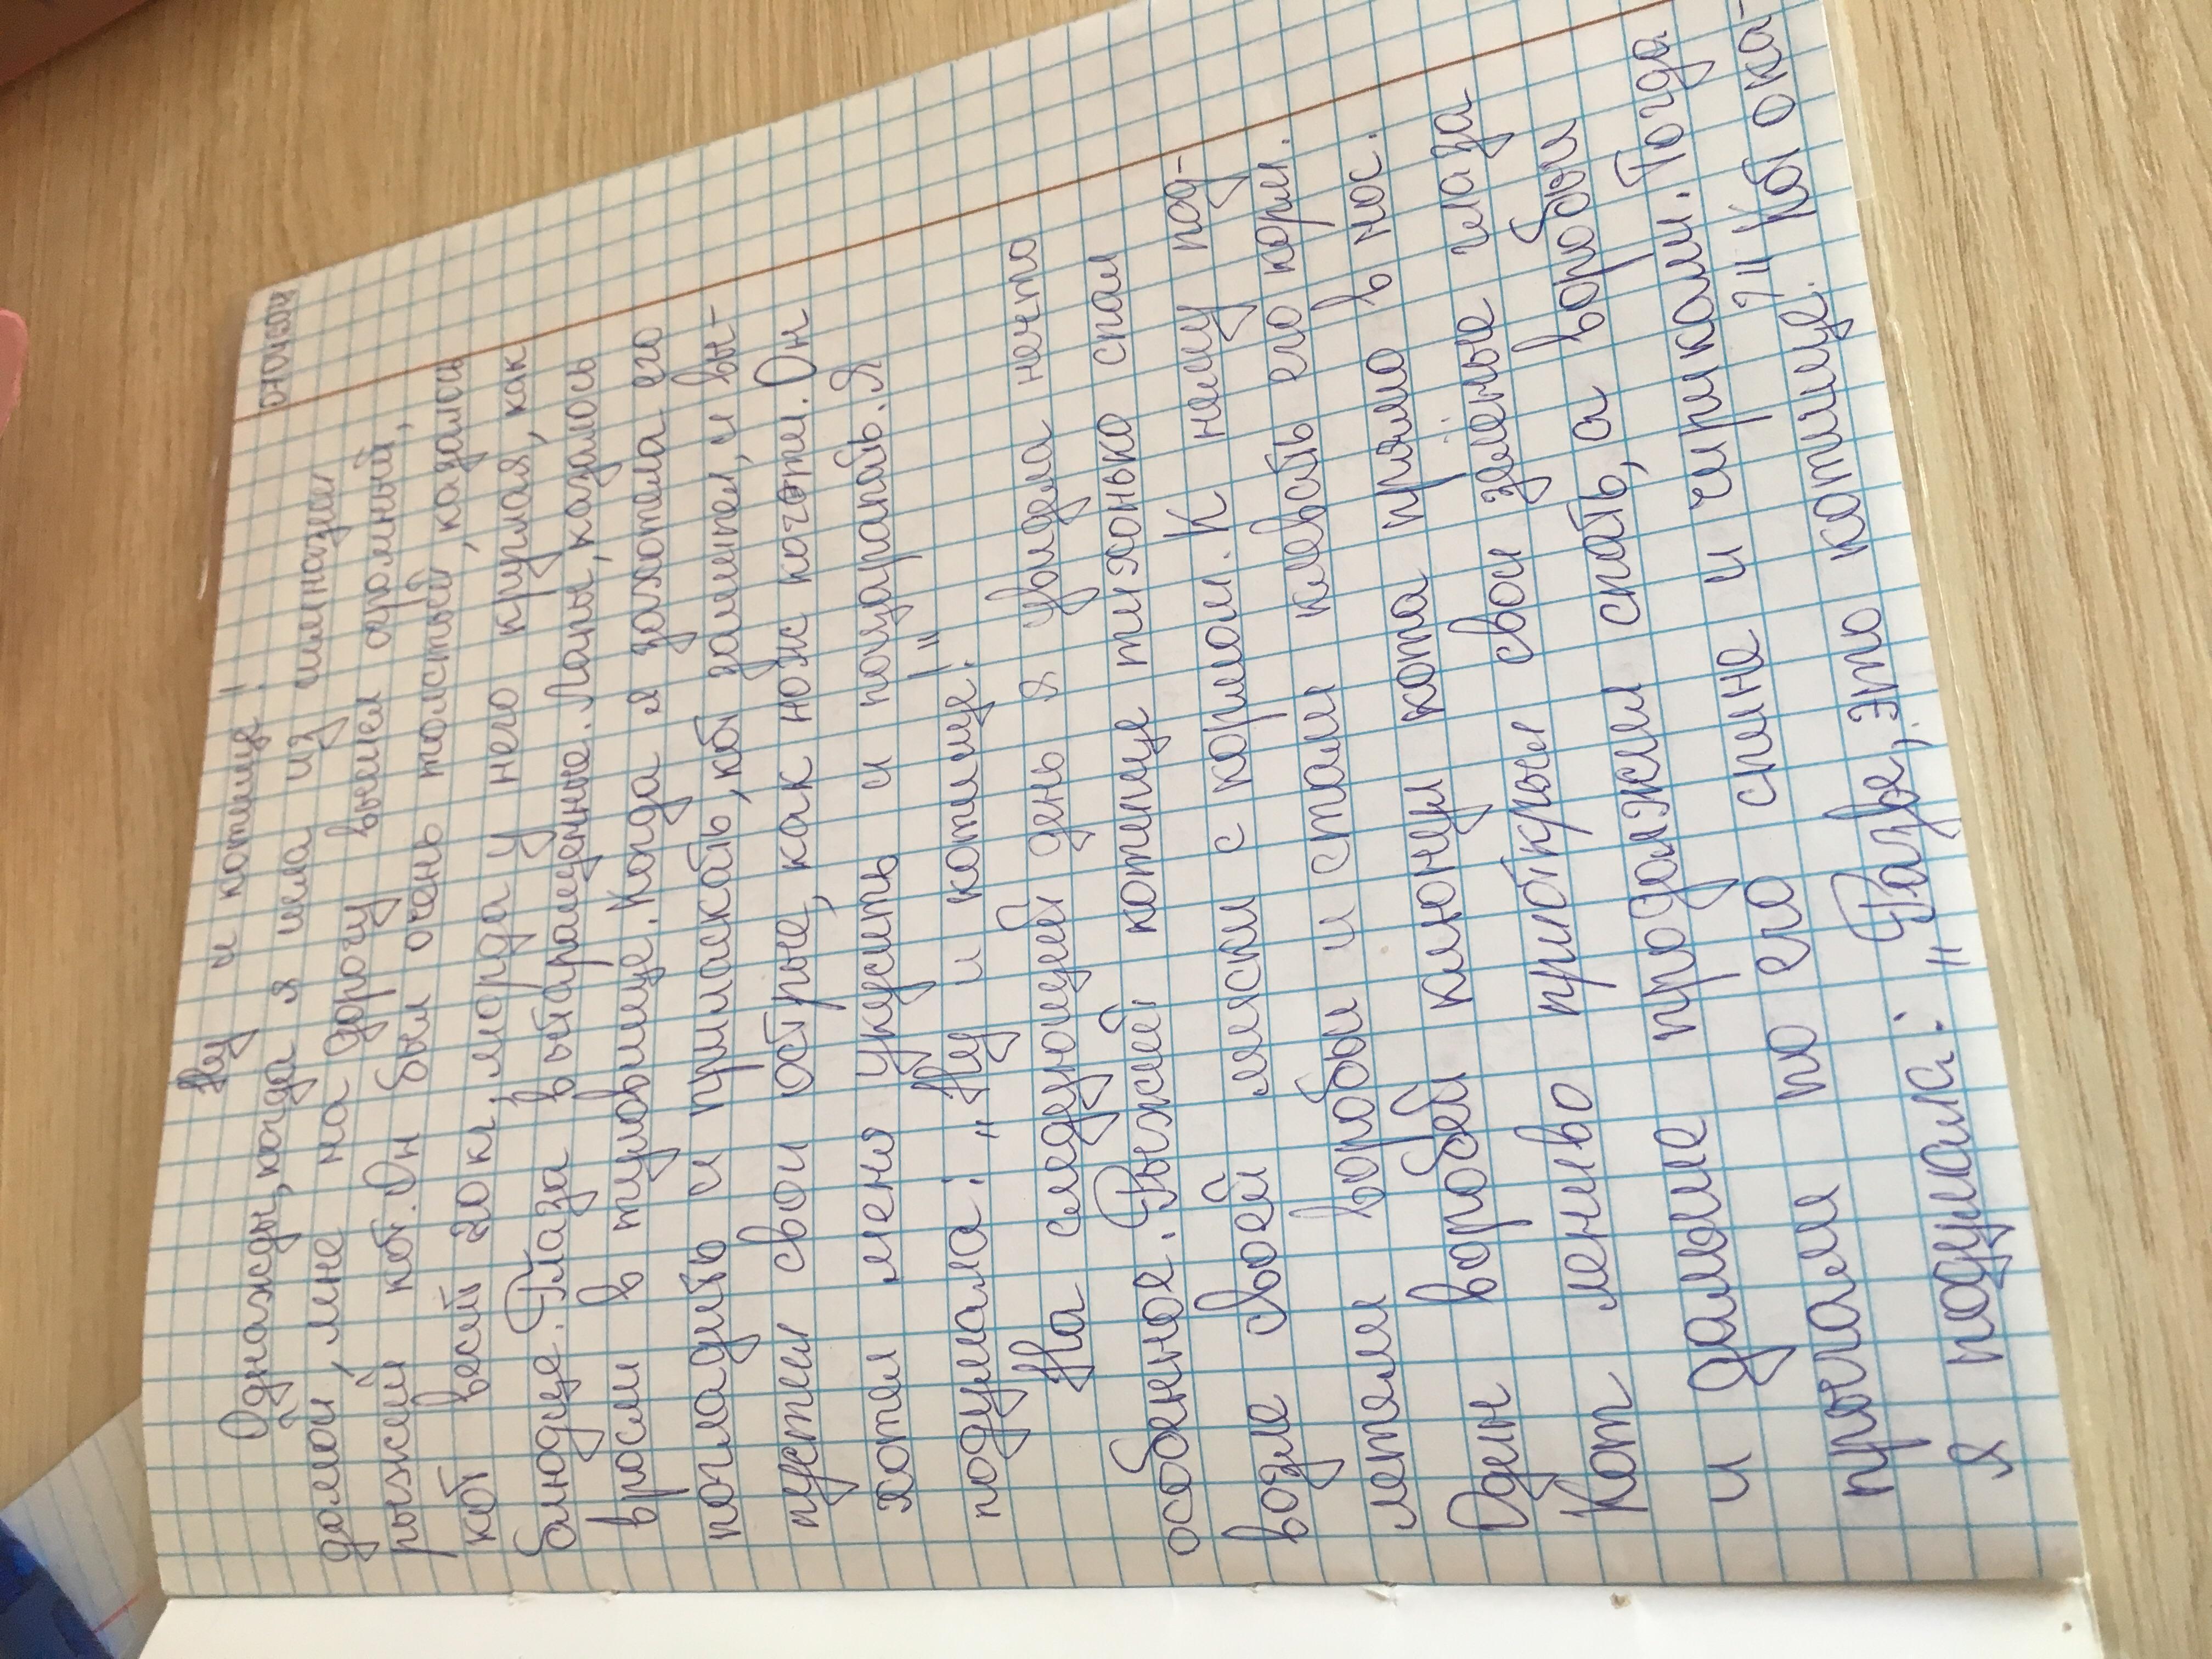 07041504
Ну и котище!
Однажды, когда я шла из гимназии
домой, мне на дорогу вышел огромный,
рыжий кот. Он был очень толстый, казалось
кот весит 20 кг, морда у него круглая, как
блюдце. Глаза вытаращенные. Лапы, казалось
вросли в туловище. Когда я захотела его
погладить и приласкать, кот заметил, и вы-
пустил свои острые, как нож когти. Он
хотел меня укусить и поцарапать. Я
подумала: „Ну и котище!"
На следующей день я увидела нечто
особенное. Рыжей котище тихонько спал
возле своей миски с кормом. К нему под-
летели воробьи и стали клевать его корм.
Один воробей клюнул кота прямо в нос.
Кот лениво приоткрыл свои зелёные глаза
и дальше продолжил спать, а воробьи
прыгали по его спине и чирикали. Тогда
я подумала: „Разве, это котище?" Кот ока-